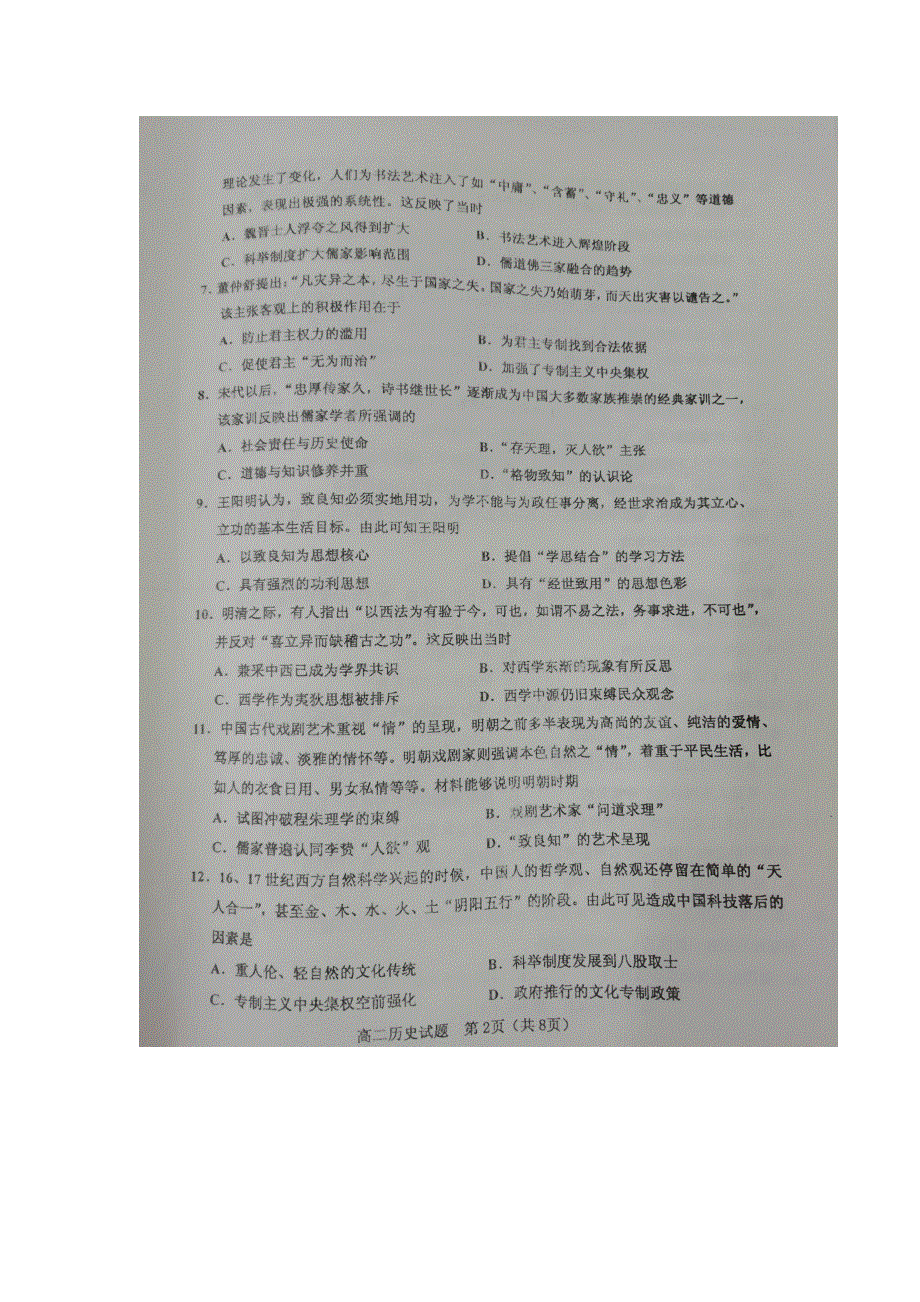 理论发生了变化，人们为书法艺术注入了如“中庸”、“含蓄”、“守礼”、“忠义”等道德
因素，表现出极强的系统性。这反映了当时
A．魏晋士人浮夸之风得到扩大 B．书法艺术进入辉煌阶段
C．科举制度扩大儒家影响范围 D．儒道佛三家融合的趋势
7．董仲舒提出：“凡灾异之本，尽生于国家之失。国家之失乃始萌芽，而天出灾害以谴告之。”
该主张客观上的积极作用在于
A．防止君主权力的滥用 B．为君主专制找到合法依据
C．促使君主“无为而治” D．加强了专制主义中央集权
8．宋代以后，“忠厚传家久，诗书继世长”逐渐成为中国大多数家族推崇的经典家训之一，
该家训反映出儒家学者所强调的
A．社会责任与历史使命 B．“存天理，灭人欲”主张
C．道德与知识修养并重 D．“格物致知”的认识论
9．王阳明认为，致良知必须实地用功，为学不能与为政任事分离，经世求治成为其立心、
立功的基本生活目标。由此可知王阳明
A．以致良知为思想核心 B．提倡“学思结合”的学习方法
C．具有强烈的功利思想 D．具有“经世致用”的思想色彩
10．明清之际，有人指出“以西法为有验于今，可也，如谓不易之法，务事求进，不可也”，
并反对“喜立异而缺稽古之功”。这反映出当时
A．兼采中西已成为学界共识 B．对西学东渐的现象有所反思
C．西学作为夷狄思想被排斥 D．西学中源仍旧束缚民众观念
11．中国古代戏剧艺术重视“情”的呈现，明朝之前多半表现为高尚的友谊、纯洁的爱情、
笃厚的忠诚、淡雅的情怀等。明朝戏剧家则强调本色自然之“情”，着重于平民生活，比
如人的衣食日用、男女私情等等。材料能够说明明朝时期
A．试图冲破程朱理学的束缚 B．戏剧艺术家“问道求理”
C．儒家普遍认同李贽“人欲”观 D．“致良知”的艺术呈现
12．16、17世纪西方自然科学兴起的时候，中国人的哲学观、自然观还停留在简单的“天
人合一”，甚至金、木、水、火、土“阴阳五行”的阶段。由此可见造成中国科技落后的
因素是
A．重人伦、轻自然的文化传统 B．科举制度发展到八股取士
C．专制主义中央集权空前强化 D．政府推行的文化专制政策
高二历史试题 第2页（共8页）